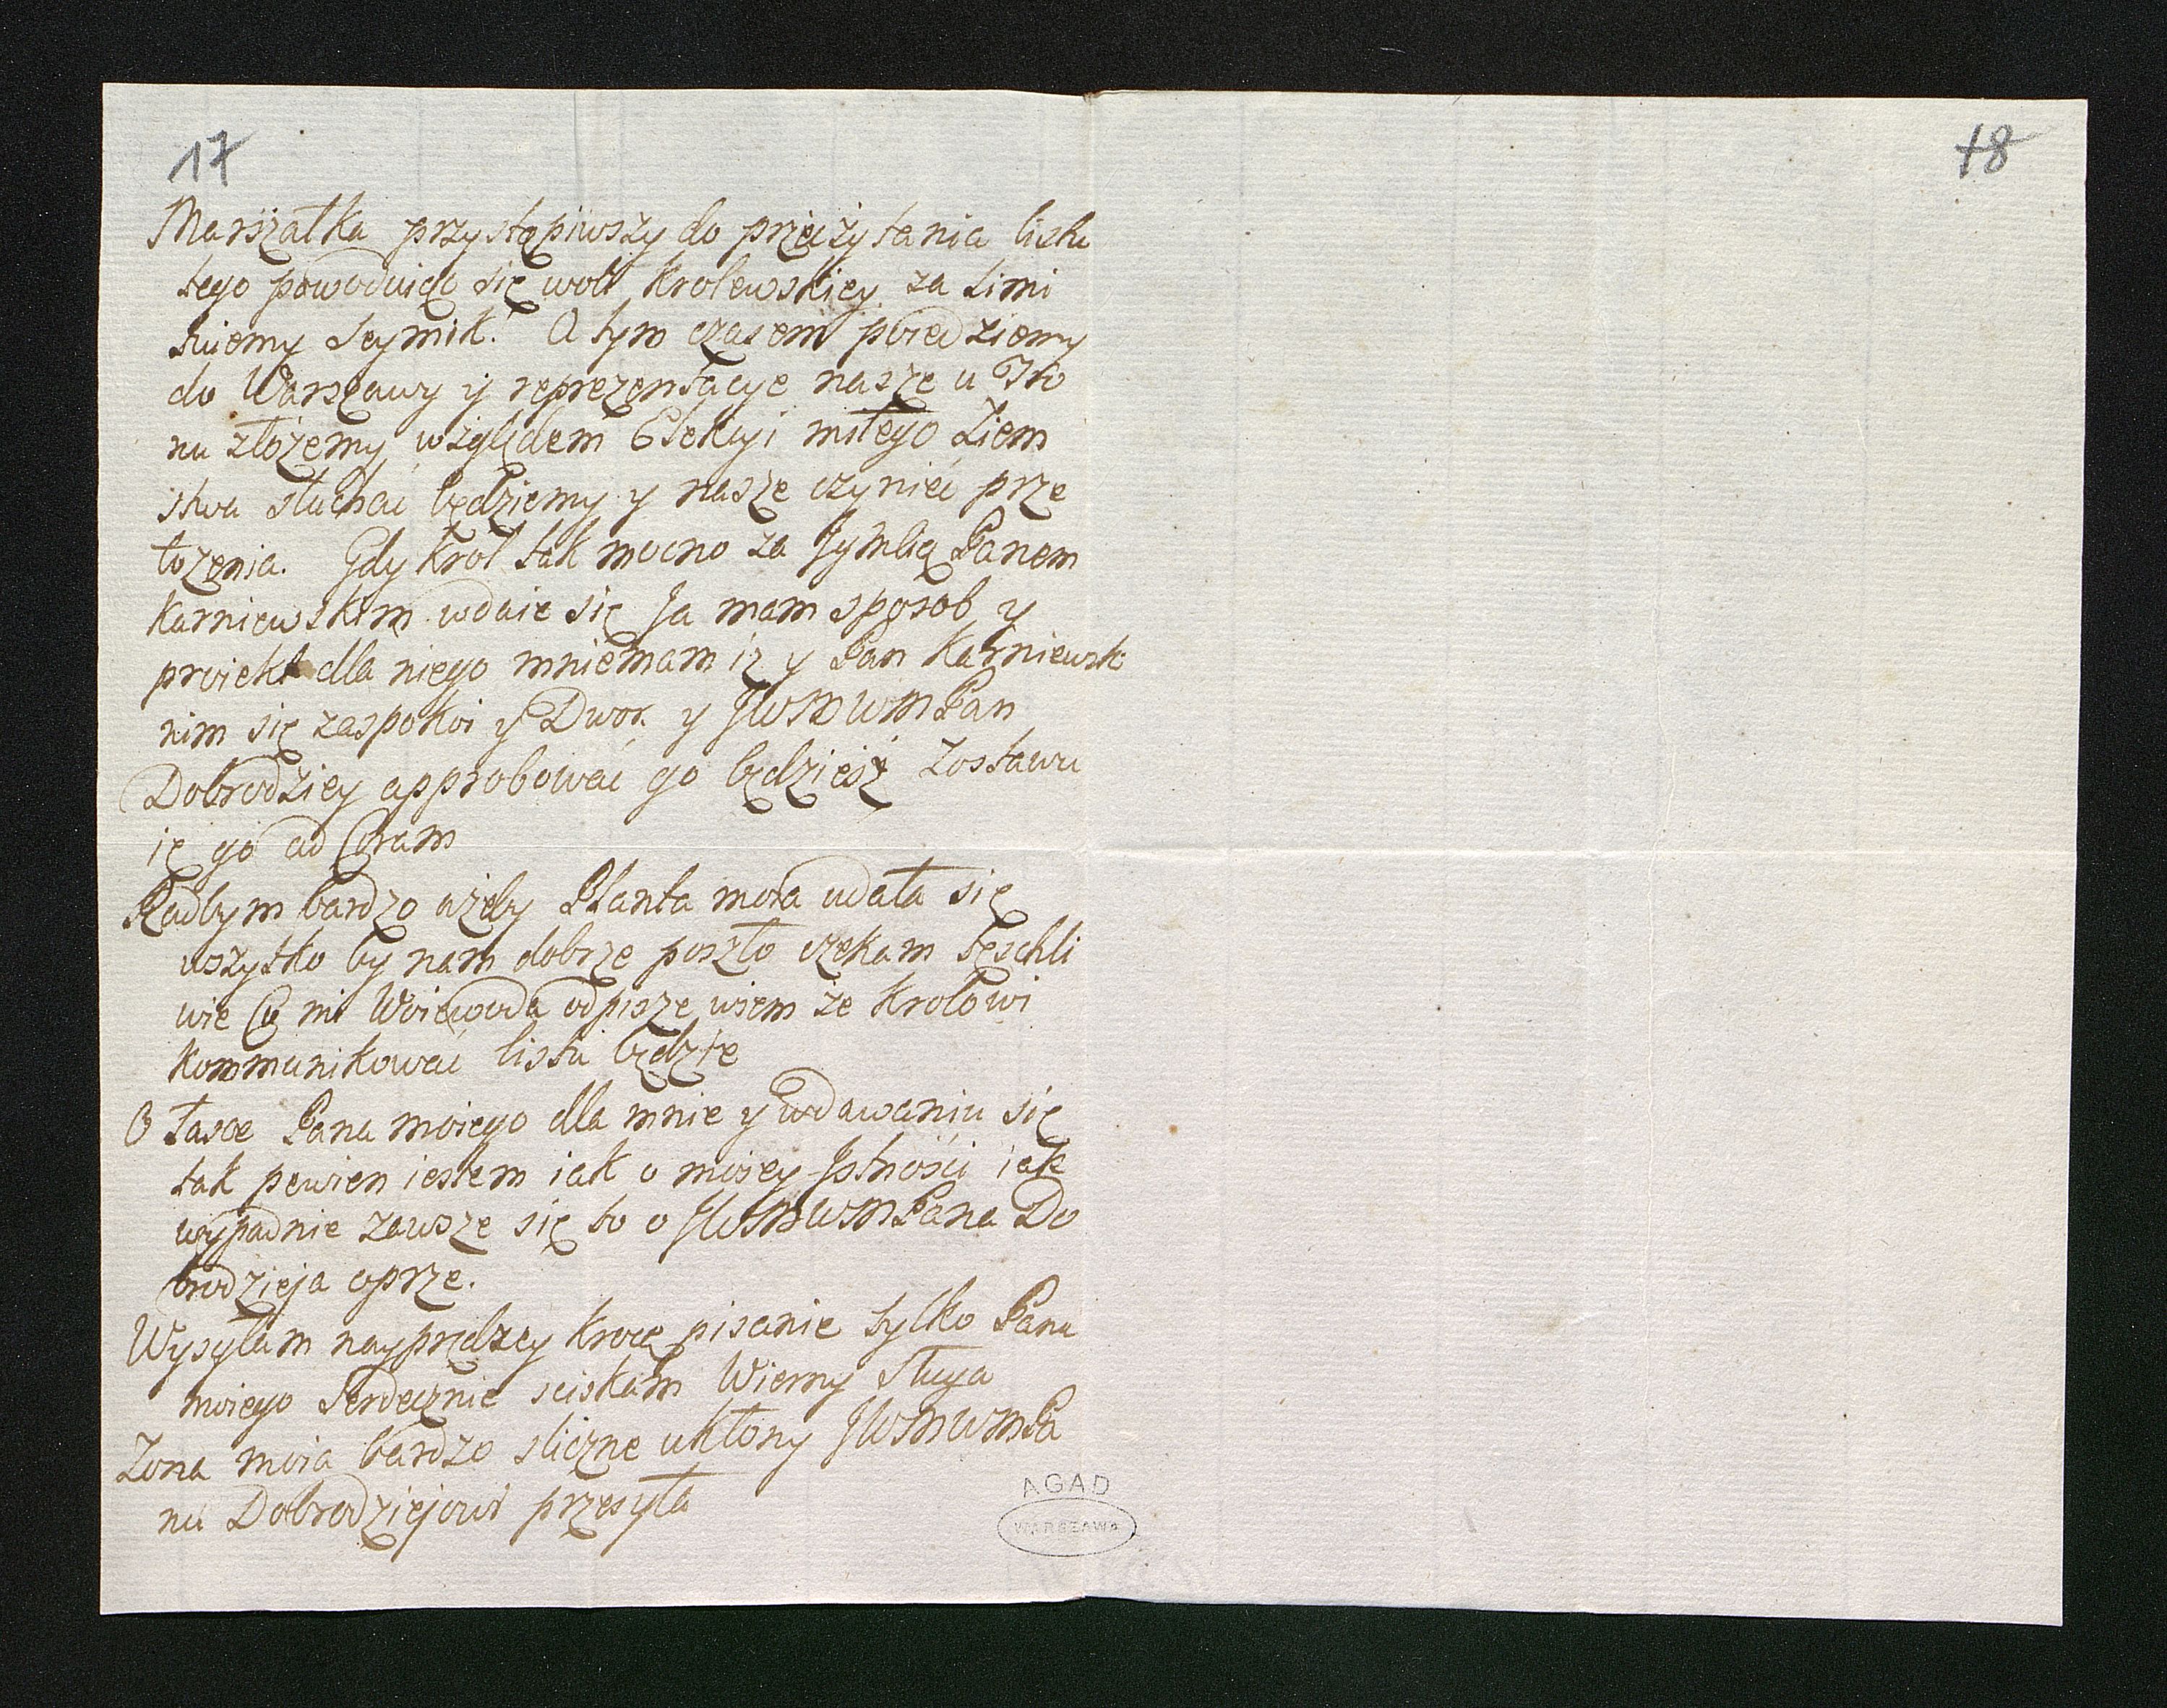 17
18
Marszałka przystąpiwszy do przeczytania listu
tego powoduiąc się woli Krolewskiey za limi
tuiemy Seymik. A tym czasem poiedziemy
do Warszawy y reprezentacye nasze u Tro
nu złożemy względem Elekcyi miłego Ziem
stwa słuchać będziemy y nasze czynić prze
łozenia. Gdy Krol tak mocno za Panem
Karniewskim wdaie się Ja mam sposob y
proiekt dla niego mniemam iz y Pan Karniewsk
nim się zaspokoi y Dwor y JWMWMPan
Dobrodziey approbować go będziesz zostawu
ię go ad Coram
Radbym bardzo ażeby Planta moia udała się
wszystko by nam dobrze poszło czekam tęschli
wie Co mi Woiewoda odpisze wiem że Krolowi
kommunikować listu będzie
O łasce Pana moiego dla mnie y wdawaniu się
tak pewien iestem iak o moiey Jstności iak
wypadnie zawsze się to o JWMWMPana Do
brodzieja oprze.
Wysyłam nayprędzey Krocę pisanie tylko Pana
moiego Serdecznie sciskam Wierny Sługa
Zona moia bardzo sliczne ukłony JWMWMPa
nu Dobrodziejowi przesyła
AGAD
WARSZAWA